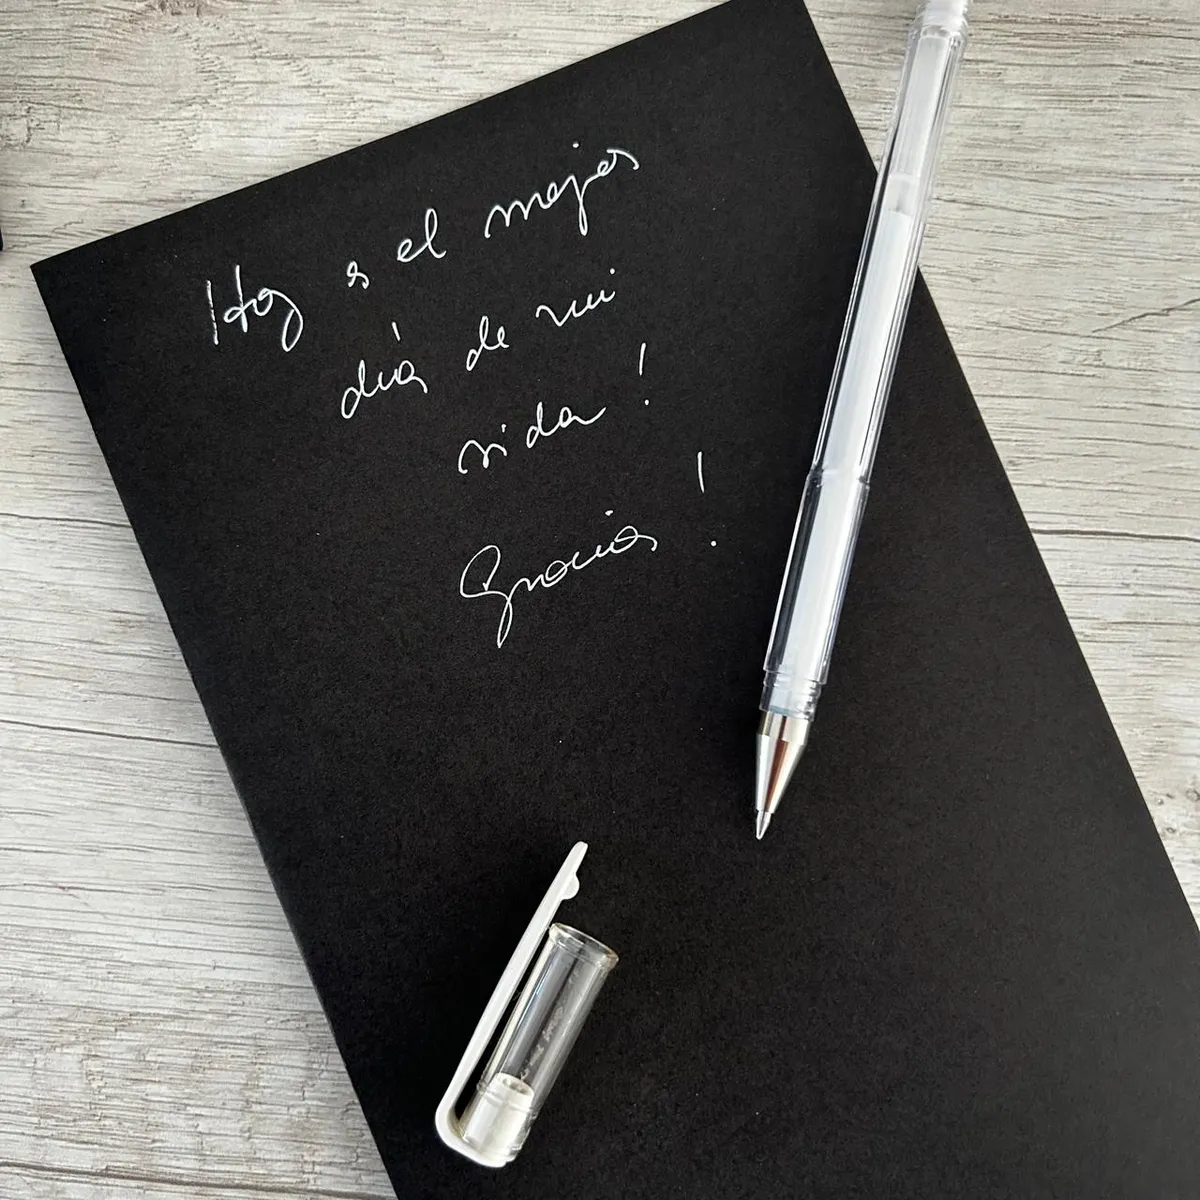 Hoy es el mejor
día de mi
vida!
Gracias!